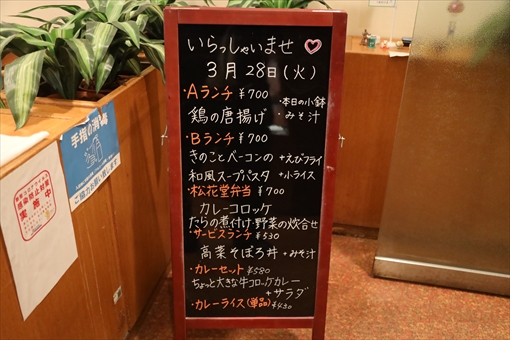 いらっしゃいませ
3月28日(火)
・Aランチ ¥700
鶏の唐揚げ ・本日の小鉢 ・みそ汁
・Bランチ ¥700
きのことベーコンの +えびフライ
和風スープパスタ +小ライス
・松花堂弁当 ¥700
カレーコロッケ
たらの煮付・野菜の炊合せ
・サービスランチ ¥530
高菜そぼろ丼 +みそ汁
・カレーセット ¥580
ちょっと大きな牛コロッケカレー
+サラダ
・カレーライス(単品) ¥430
手指の消毒
ご協力お願い致します
実施中